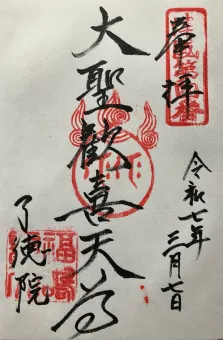 奉拝
大聖歓喜天尊
令和七年
三月七日
了徳院
福島